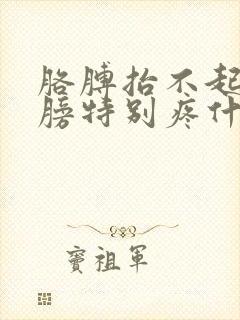 胳膊抬不起
膀特别疼什
窦祖军